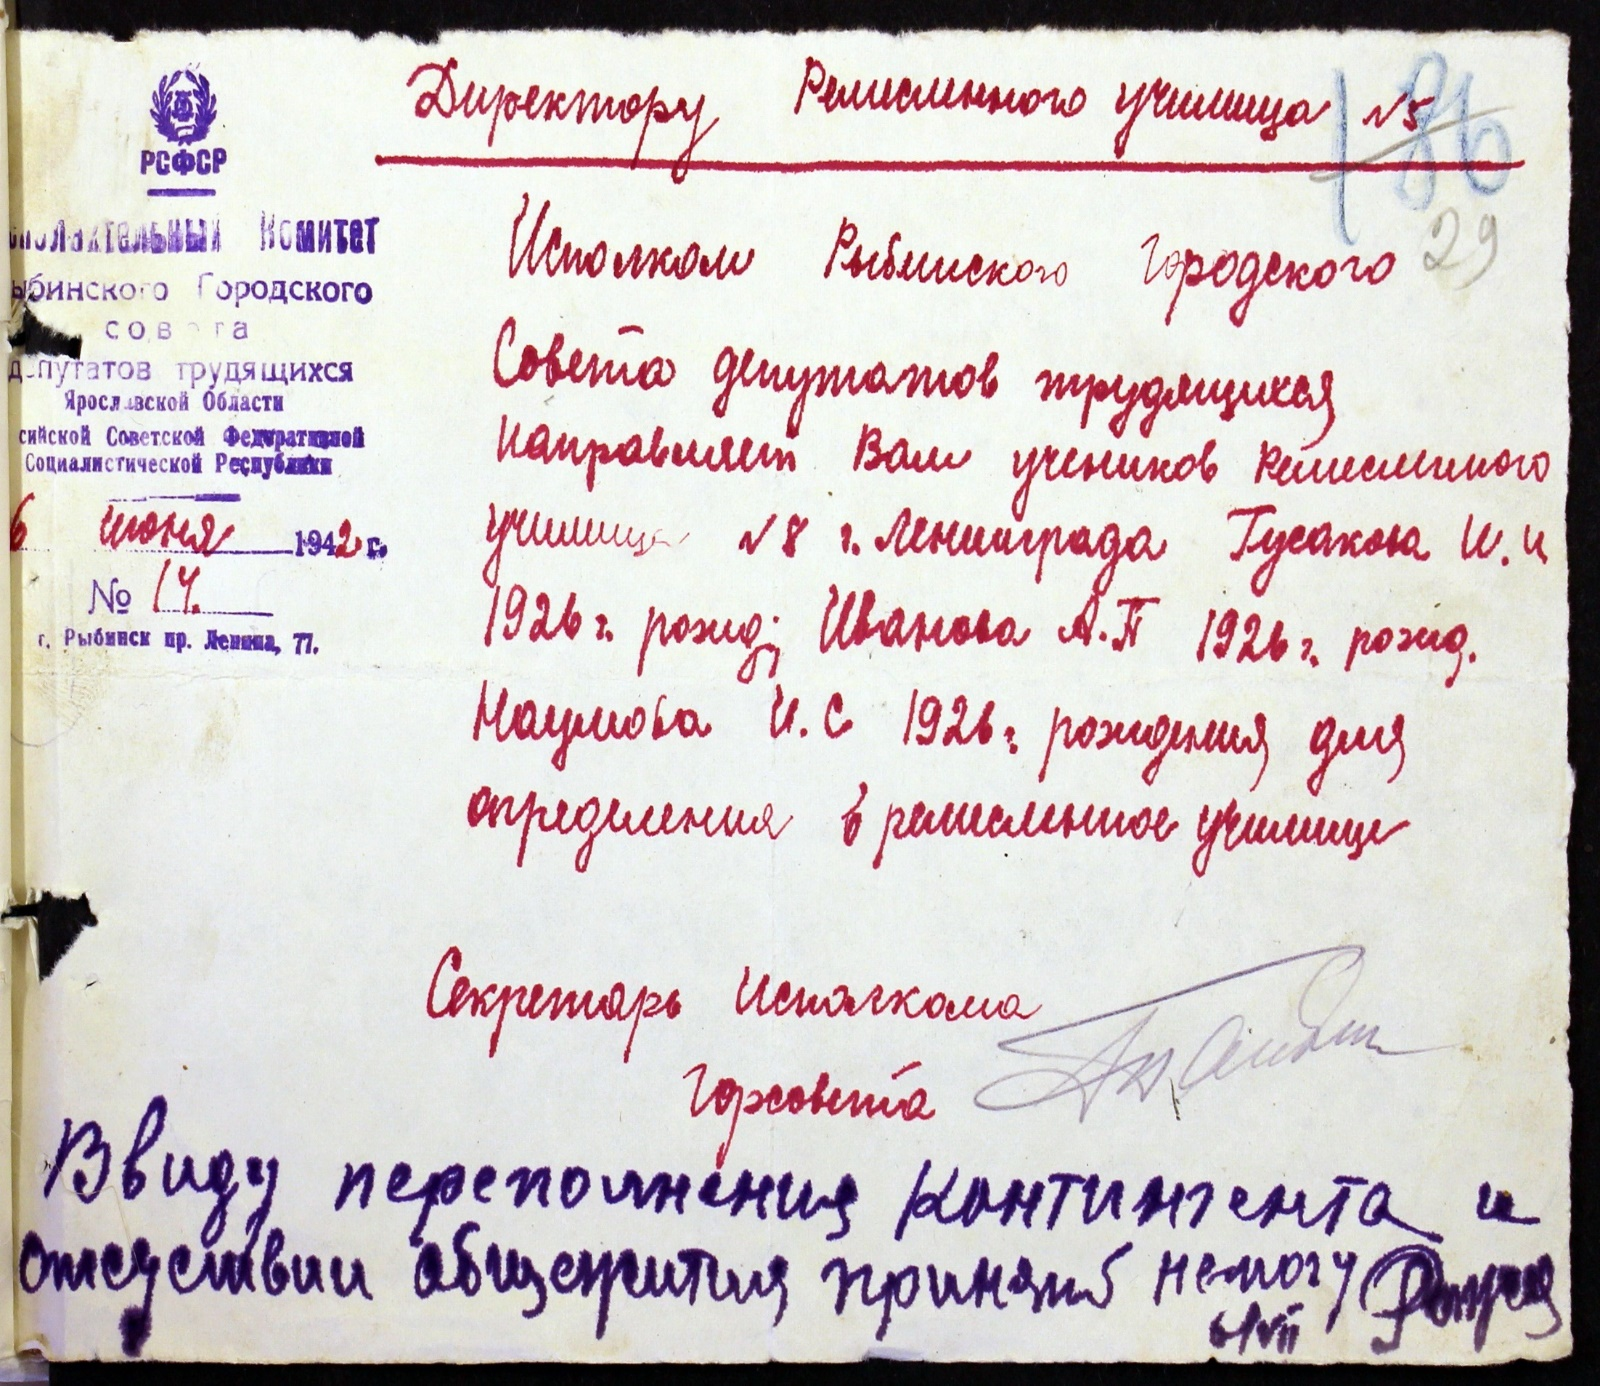 РСФСР
Исполнительный Комитет
Рыбинского Городского
совета
депутатов трудящихся
Ярославской Области
сийской Советской Федеративной
Социалистической Республики
6 июня 1942 г.
№ 14.
г. Рыбинск пр. Ленина, 77.
Директору Ремесленного училища №5
86
29
Исполком Рыбинского Городского
Совета депутатов трудящихся
направляет Вам учеников Ремесленного
училища №8 г. Ленинграда Гусакова И. И
1926 г. рожд; Иванова А.П 1926 г. рожд.
Наумова И.С 1926 г. рождения для
определения в ремесленное училище
Секретарь Исполкома
Горсовета
Ввиду переполнения контингента и
отсуствии общежития принять немогу
6/VII